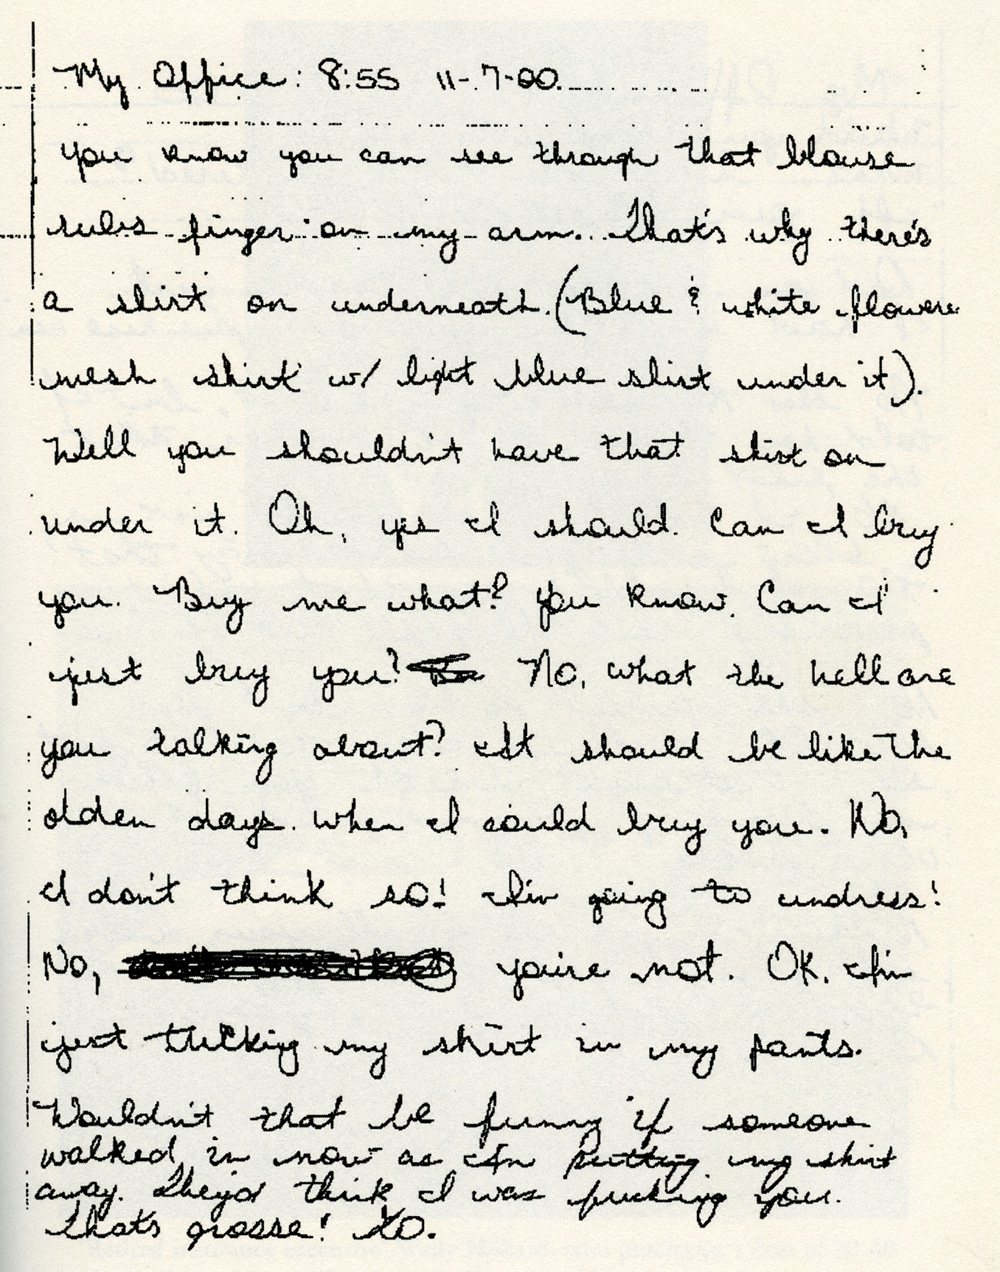 My Office: 8:55 11-7-00
you know you can see through that blouse
rubs finger on my arm. That's why there's
a shirt on underneath. (Blue & white flower
mesh shirt w/ light blue shirt under it).
Well you shouldn't have that shirt on
under it. Oh, yes I should. Can I buy
you. Buy me what? You know. Can I
just buy you? No, what the hell are
you talking about? It should be like the
olden days when I could buy you. No,
I don't think so! I'm going to undress!
No, you're not. OK. I'm
just tucking my shirt in my pants.
Wouldn't that be funny if someone
walked in now as I'm putting my shirt
away. They'd think I was fucking you.
That's grosse!